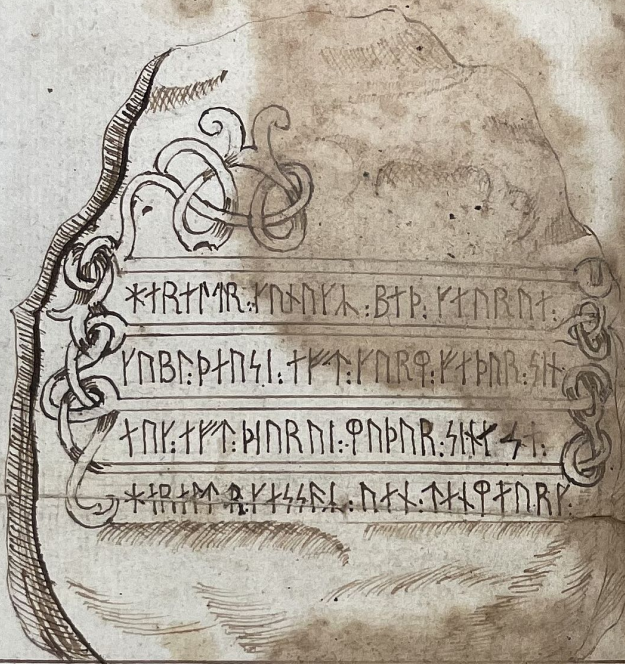 ᚼᛅᚱᛅᛚᛏᚱ᛬ᚴᚢᚾᚢᚴᛦ᛬ᛒᛅᚦ᛬ᚴᛅᚢᚱᚢᛅ᛬
ᚴᚢᛒᛚ᛬ᚦᛅᚢᛋᛁ᛬ᛅᚠᛏ᛬ᚴᚢᚱᛘ᛬ᚠᛅᚦᚢᚱ᛬ᛋᛁᚾ
ᛅᚢᚴ᛬ᛅᚠᛏ᛬ᚦᛁᚢᚱᚢᛁ᛬ᛘᚢᚦᚢᚱ᛬ᛋᛁᚾᛅ ᛋᛅ᛬
ᚼᛅᚱᛅᛚᛏᚱ᛬ᚴᛅᛋᛋᚭᛦ᛬ᚢᛅᚾ᛬ᛏᛅᚾᛘᛅᚢᚱᚴ᛬